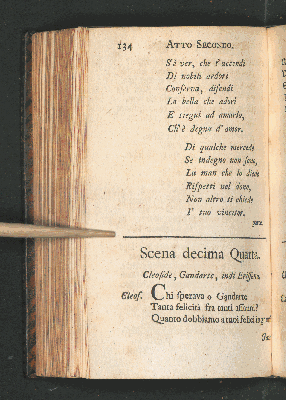 134 ATTO SECONDO.
S'è ver, che t'accendi
Di nobili ardori
Conserva, difendi
La bella che adori
E siegui ad amarla,
Ch'è degna d'amor.
Di qualche mercede
Se indegno non sou,
La man che lo diede
Rispetti nel dono,
Non altro ti chiede
Il tuo vincitor.
Scena decima Quarta.
Cleofide, Gandarte, indi Erissena.
Cleof. Chi sperava o Gandarte
Tanta felicità fra tanti affanni?
Quanto dobbiamo a tuoi felici